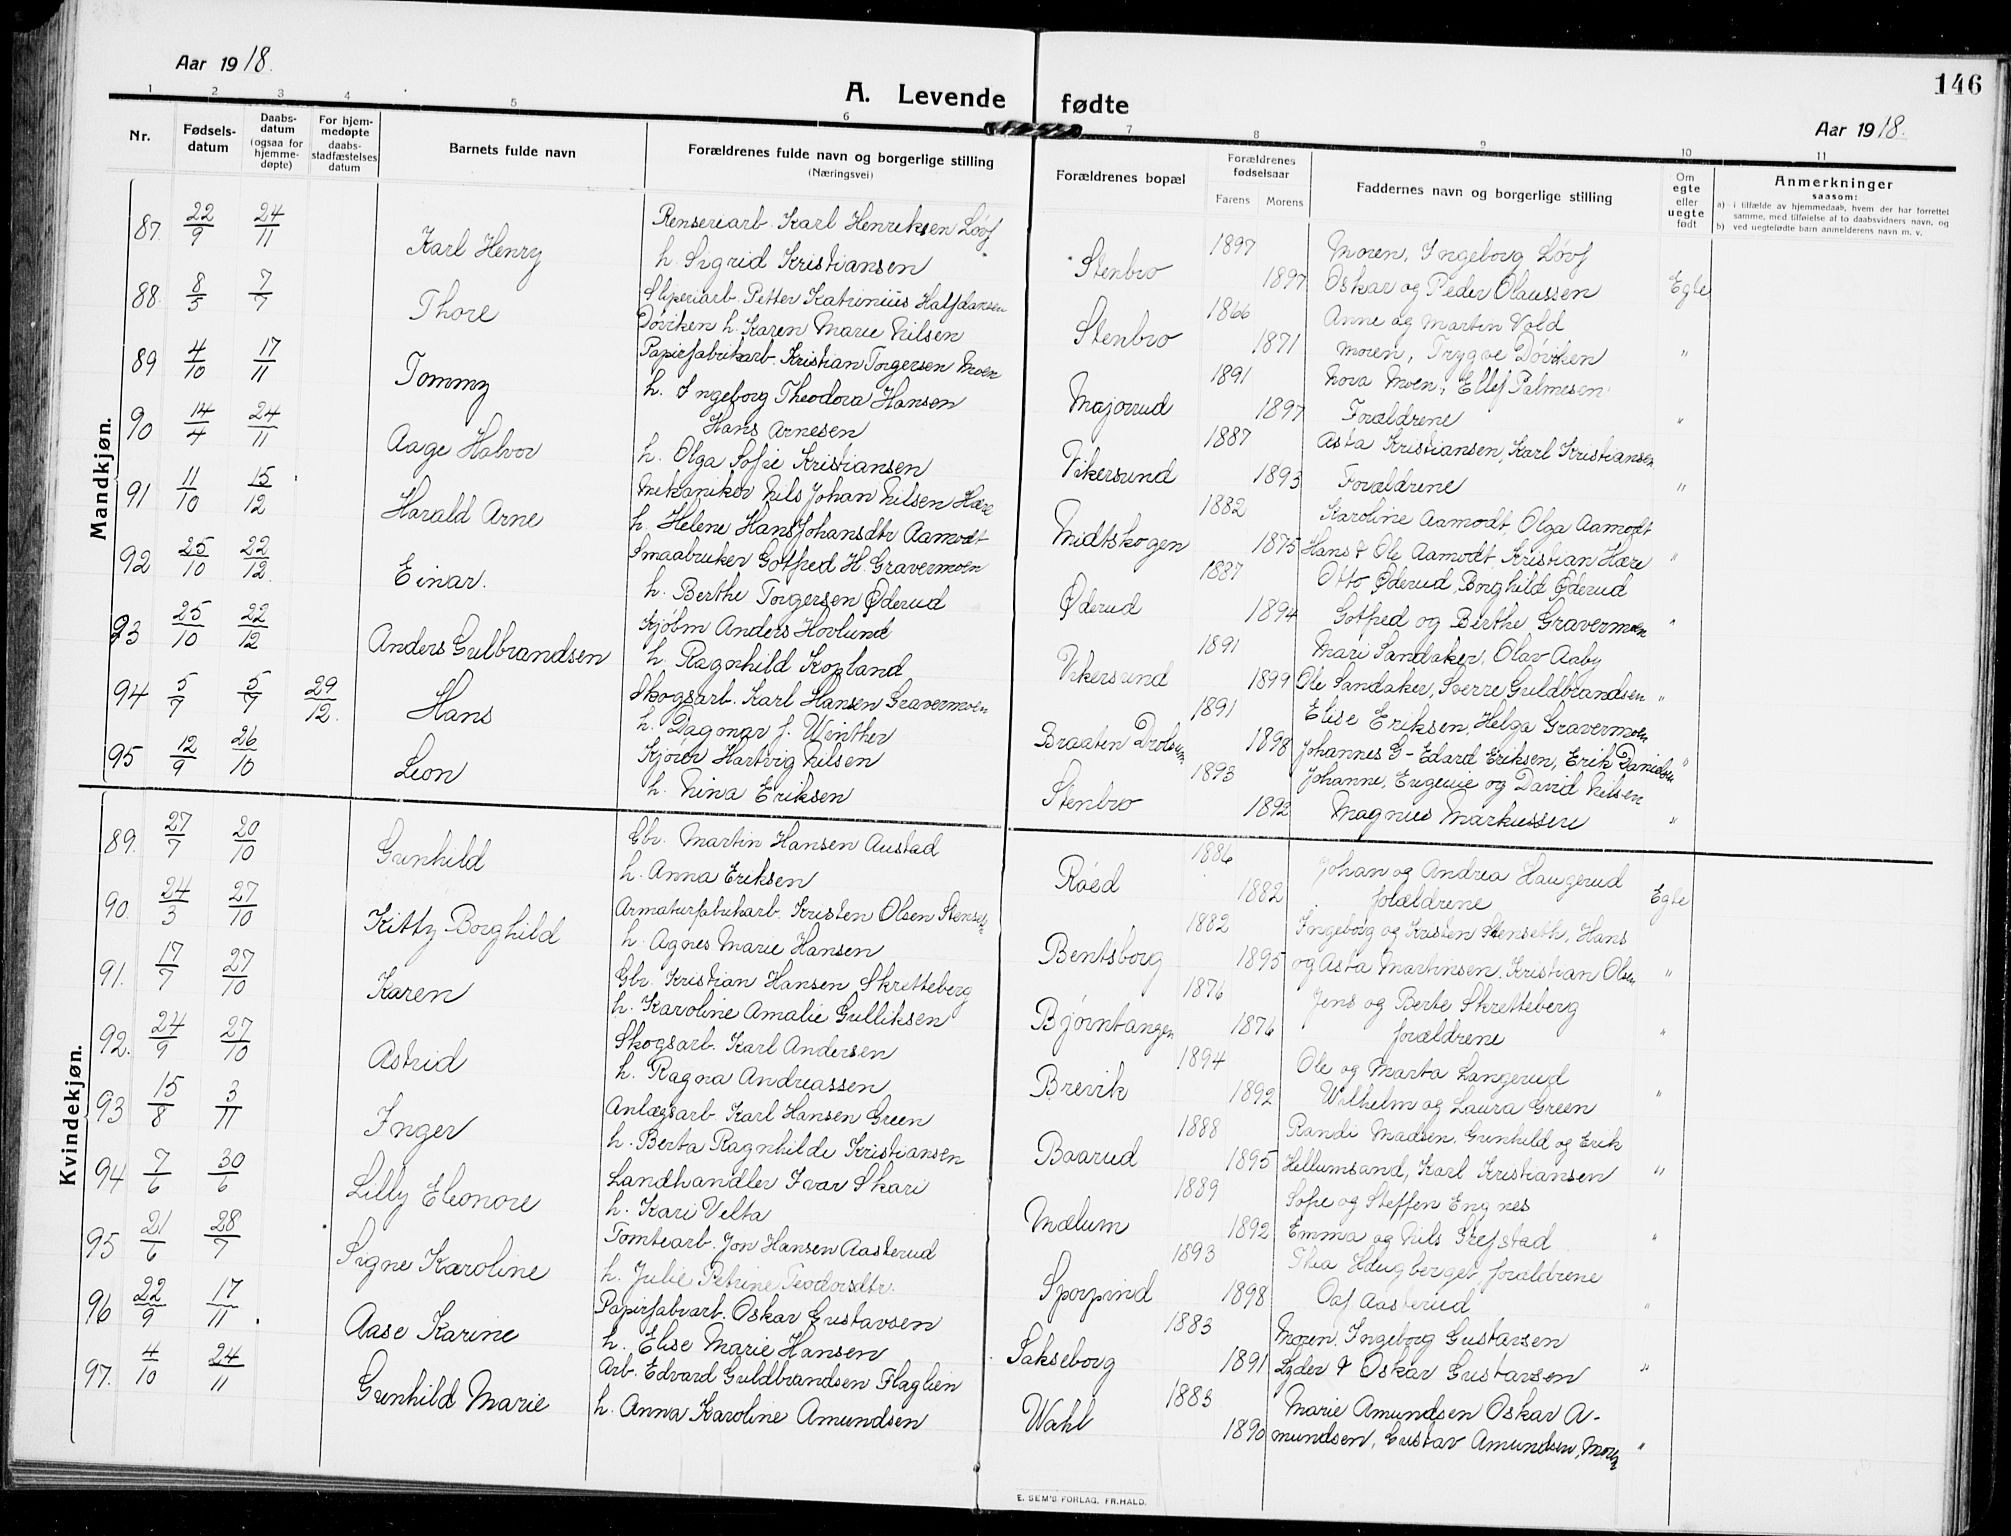 Aar 1918.
146
A. Levende fødte
Aar 1918.
1 2 3 4 5 6 7 8 9 10 11
Nr.
Fødsels-datum
Daabs-datum (ogsaa for hjemme-døpte)
For hjem-medøpte daabs-stadfæstelses datum
Barnets fulde navn
Forældrenes fulde navn og borgerlige stilling
(Næringsvei)
Forældrenes bopæl
Forældrenes fødselsaar
Farens Morens
Faddernes navn og borgerlige stilling
Om egte eller uegte født
Anmerkninger
saasom:
a) i tilfælde av hjemmedaab, hvem der har forrettet
samme, med tilføielse af to daabsvidners navn, og
b) ved uegtefødte barn anmelderens navn m. v.
Mandkjøn.
87. 22/9 24/11 Karl Henry Renseriarb. Karl Henriksen Løvf Stenbro 1897 Moren, Ingeborg Løvf
h. Sigrid Kristiansen 1897 Oskar og Peder Olaussen Egte
88. 8/5 7/7 Thore Sliperiarb. Petter Katrinius Halfdansen Stenbro 1866 Anne og Martin Vold
Døviken h. Karen Marie Nilsen 1871 Moren, Trygve Døviken "
89 4/10 17/11 Tommy Papirfabrikarb. Kristian Torgersen Moen Majorrud 1891 Nora Moen, Ellef Palmesen
h. Ingeborg Theodora Hansen 1897 Forældrene "
90 14/4 24/11 Aage Halvor Hans Arnesen Vikersund 1887 Asta Kristiansen, Karl Kristiansen
h. Olga Sofie Kristiansen 1893 Forældrene "
91 11/10 15/12 Harald Arne Mekaniker Nils Johan Nilsen Hære Midtskogen 1882 Karoline Aamodt, Olga Aamodt
h. Helene Hans Johansdtr Aamodt 1875 Hans & Ole Aamodt, Kristian Hære "
92 25/10 22/12. Einar. Smaabruker Gotfred H. Gravermoen Øderud 1887 Otto Øderud, Borghild Øderud
h. Berthe Torgersen Øderud 1894 Gotfred og Berthe Gravermoen "
93 25/10 22/12 Anders Gulbrandsen Kjøbm Anders Hovlund Vikersund 1891 Mari Sandaker, Olav Aaby
h. Ragnhild Kopland 1899 Ole Sandaker, Sverre Guldbrandsen "
94 5/7 5/7 29/12. Hans Skogsarb. Karl Hansen Gravermoen Braaten Drolsum 1891 Elise Eriksen, Helga Gravermoen
h. Dagmar J. Winther 1898 Johannes G- Edard Eriksen, Erik Danielsen "
95 12/9 26/10 Leon Kjører Hartvig Nilsen Stenbro 1893 Johanne, Eugenie og David Nilsen
h. Nina Eriksen 1892 Magnus Markussen "
Kvindekjøn.
89. 27/7 20/10 Gunhild Gbr. Martin Hansen Austad Røed 1886 Johan og Andrea Haugerud
h. Anna Eriksen 1882 forældrene Egte
90. 24/3 27/10 Kitty Borghild Armaturfabrikarb. Kristen Olsen Stenset Bentsborg 1882 Ingeborg og Kristen Stenseth, Hans
h. Agnes Marie Hansen 1895 og Asta Martinsen, Kristian Olsen "
91. 17/7 27/10 Karen Gbr. Kristian Hansen Skretteberg Bjørntangen 1876 Jens og Berte Skretteberg
h. Karoline Amalie Gulliksen 1876 forældrene "
92. 24/9 27/10 Astrid Skogsarb. Karl Andersen Brevik 1894 Ole og Marta Langerud
h. Ragna Andreassen 1892 Wilhelm og Laura Green "
93 15/8 3/11 Inger Anlægsarb. Karl Hansen Green Baarud 1888 Randi Madsen, Gunhild og Erik
h. Berta Ragnhilde Kristiansen 1895 Hellumsand, Karl Kristiansen "
94 7/6 30/6 Lilly Eleonore Landhandler Ivar Skari Mælum 1889 Sofie og Steffen Engnes
h. Kari Velta 1892 Emma og Nils Skefstad "
95 21/6 28/7 Signe Karoline Tomtearb. Jon Hansen Aasterud Sporpind 1893 Thea Haugberget, forældrene
h. Julie Petrine Teodorsdtr. 1898 Oaf Aasterud "
96 22/9 17/11 Aase Karine Papirfabrarb. Oskar Gustavsen Sakseborg 1883 Moren, Ingeborg Gustavsen
h. Elise Marie Hansen 1891 Lyder & Oskar Gustavsen "
97. 4/10 24/11 Gunhild Marie Arb. Edvard Guldbrandsen Flaglien Wahl 1883 Marie Amundsen Oskar A-
h. Anna Karoline Amundsen 1890 mundsen, Gustav Amundsen, Moren "
E. SEM'S FORLAG, FR.HALD.